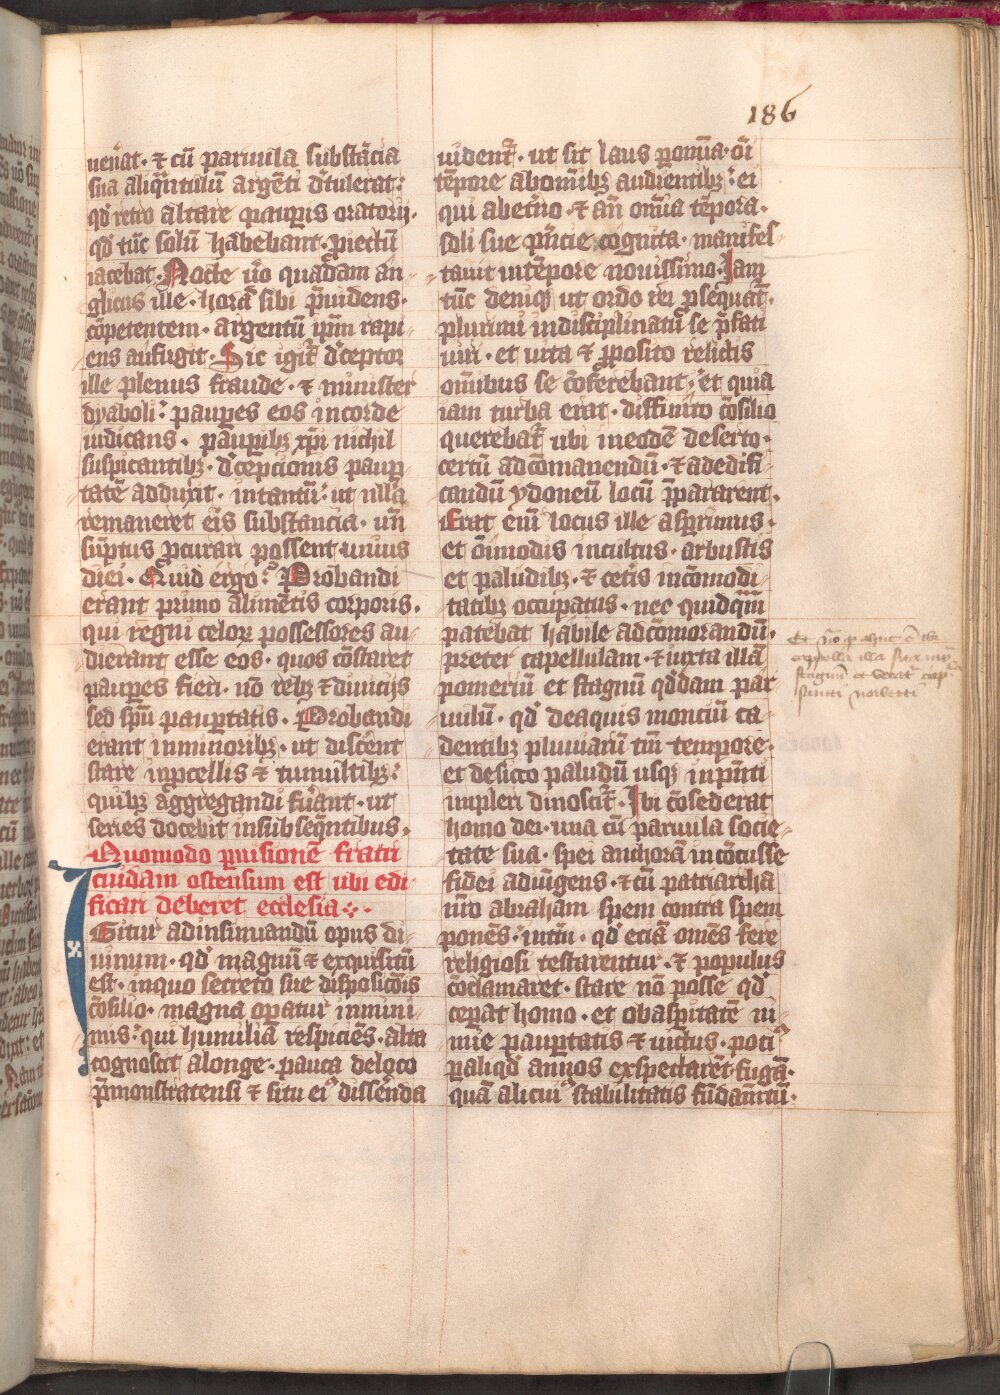 186
uenerat · ⁊ cū paruula substācia
sua aliq̄ntulū argēti dētulerat:
qd̓ retro altare paup̄is oratorij ·
qd̓ tūc solū habebant · ꝓiectū
iacebat · Nocte ūo quadam an
glicus ille · horā sibi p̄uidens ·
cōpetentem · argentū ip̄m rapi
ens aufugit · Sic igit̄ dēceptor
ille plenus fraude · ⁊ minister
dyaboli: paup̄es eos in corde
iudicans · paup̄ibꝫ xp̄i nichil
suspicantibꝫ · dēcepcionis paup̄
tatē adduxit · in tantū: ut nulla
remaneret eis substancia · un̄
sūptus ꝓcurari possent unius
diei · Quid ergo? Probandi
erant primo alimētis corporis ·
qui regni celoꝝ possessores au
dierant esse eos · quos cōstaret
paup̄es fieri · nō rebꝫ ⁊ diuicijs
sed sp̄u paup̄tatis · Probandi
erant in minoribꝫ · ut discēnt
stare in ꝓcellis ⁊ tumultibꝫ:
quibꝫ aggregandi fu̓ant · ut
series docebit in subseq̄ntibus ·
Quomodo ꝑ uisionē fratri
cuidam ostensum est ubi edi
ficari deberet ecclesia ·
IGitur ad insinuandū opus di
uinum · qd̓ magnū ⁊ exquisitū
est · in quo secreto sue disposicōis
cōsilio · magna oꝑatur in mini
mis: qui humilia respiciēs · alta
cognoscit a longe · pauca de loco
p̄monstratensi ⁊ situ ei᾽ dissēnda
uident̄ · ut sit laus ꝑ om̄ia · oī
tēpore ab om̄ibꝫ audientibꝫ: ei
qui ab et̓no · ⁊ an̄ om̄ia tēpora ·
soli sue p̄ncie cognita · manifes
tauit in tēpore nouissimo · Iam
tūc deniqꝫ ut ordo rei ꝓsequat̄ ·
plurimi indisciplinatū se p̄fati
uiri · et uita ⁊ ꝓposito relictis
om̄ibus se cōferebant · et quia
iam turba erat · diffinito cōsilio
querebat̄ ubi in eodē deserto ·
certū ad cōmanendū · ⁊ ad edifi
candū ydoneū locū p̄pararent ·
Erat eni᷒ locus ille asꝑrimus ·
et oīmodis incultus · arbustis
et paludibꝫ · ⁊ cet̓is incōmodi
tatibꝫ occupatus · nec quidq̄m
patebat habile ad cōmorandū ·
preter capellulam · ⁊ iuxta illā
pomeriū et stagnū qd̓dam par
uulū · qd̓ de aquis monciū ca
dentibꝫ pluuiarū tm̄ tempore ·
et de sicco paludū usqꝫ in pn̄ti
impleri dinoscit̄ · Ibi cōsederat
homo dei · una cū paruula socie
tate sua · spei anchorā incōcusse
fidei adiūgens · ⁊ cū patriarcha
ūro abraham spem contra spem
ponēs: · qd̓ eciā omēs fere
religiosi testarentur · ⁊ populus
cōclamaret · stare nō posse qd̓
ceꝑat homo · et ob asꝑitatē ni
mie paup̄tatis ⁊ uictus · poti᾽
ꝑ aliqd̓ annos exspectaret fugā ·
quā alicui᾽ stabilitatis fūdam̄tū ·